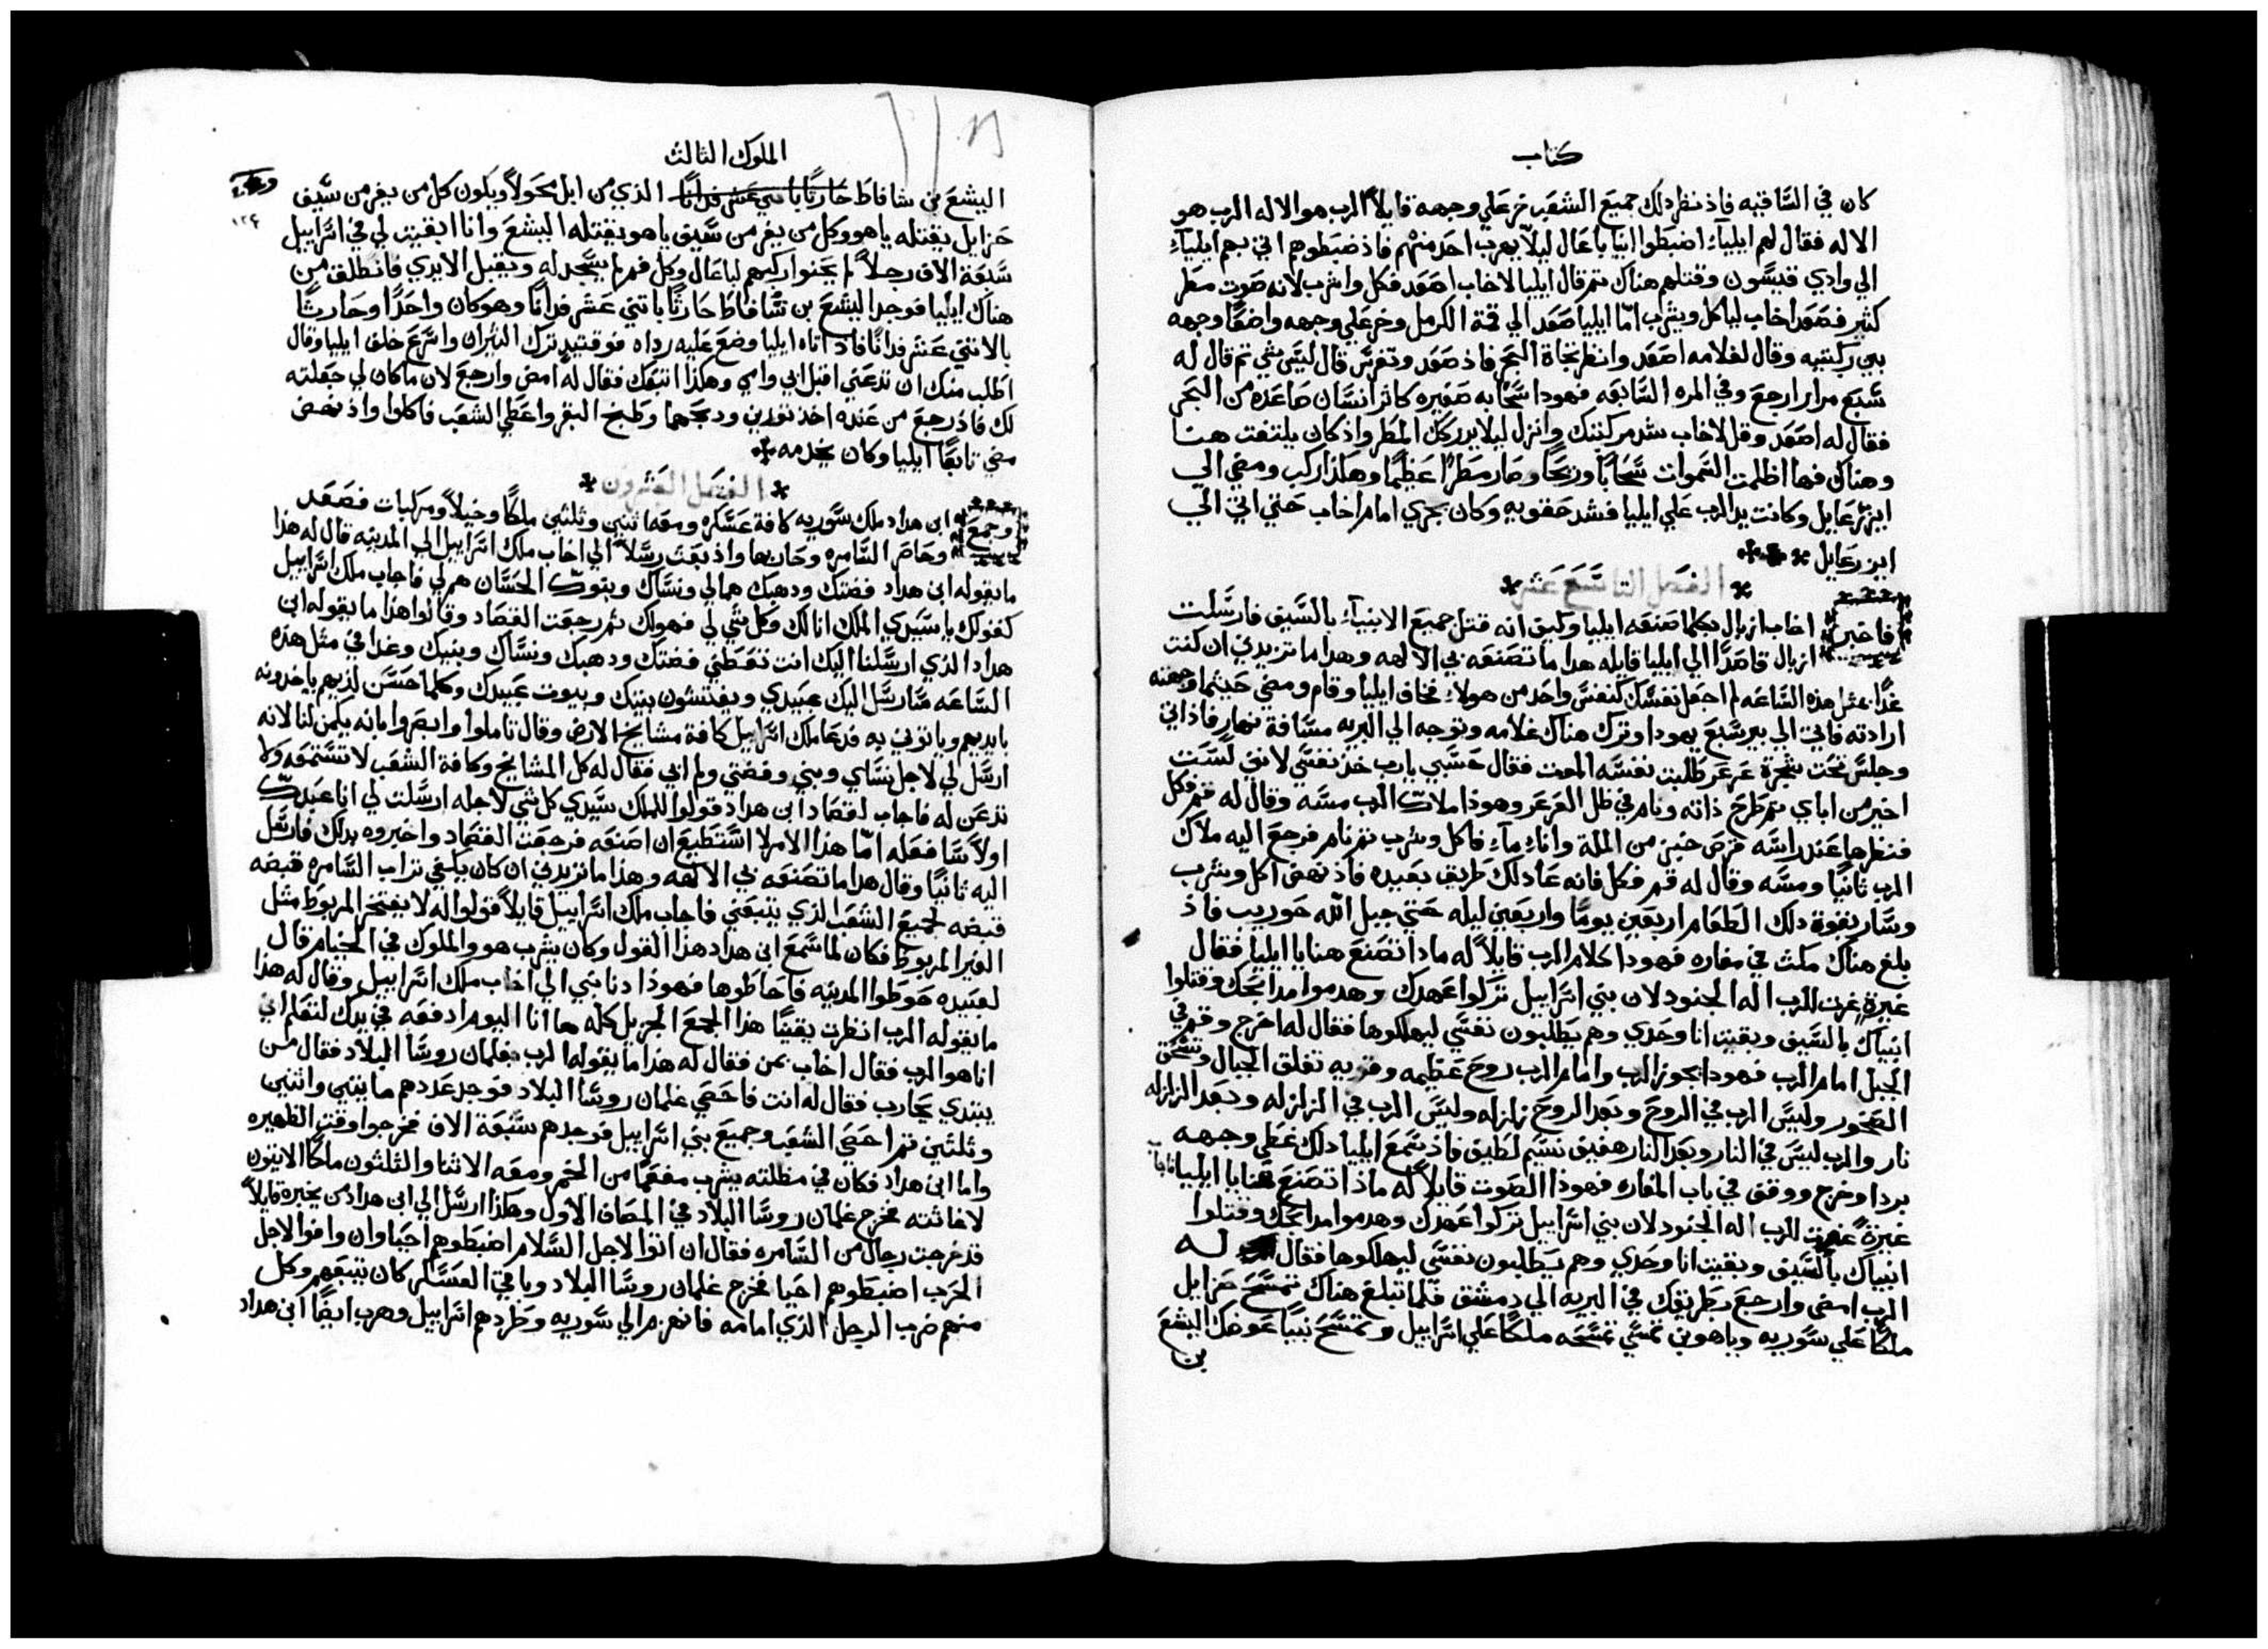 كتاب
كان في الساقيه فاذ نظر ذلك جميع الشعب خر علي وجهه قايلاً الرب هو الاله الرب هو
الاله فقال لهم ايلياء اضبطوا انبيا باعال ليلا يهرب احد منهم فاذ ضبطوهم اتي بهم ايلياء
الي وادي قيسون وقتلهم هناك ثم قال ايليا لاخاب اصعد فكل واشرب لانه صوت مطر
كثير فصعد اخاب لياكل ويشرب امّا ايليا صعد الي قمة الكرمل وخر علي وجهه واضعًا وجهه
بين ركبتيه وقال لغلامه اصعد وانظر تجاة البحر فاذ صعد وتفرس قال ليس شي ثم قال له
سبع مرار ارجع وفي المره السابعه فهوذا سحابه صغيره كاثر انسان صاعده من البحر
فقال له اصعد وقل لاخاب شد مركبتك وانزل ليلا يدركك المطر واذ كان يلتفت هنا
وهناك فها اظلمت السموات سحابًا وريحًا وصار مطرًا عظيمًا وهكذا ركب ومضي الي
ايزرعايل وكانت يد الرب علي ايليا فشد حقويه وكان يجري امام اخاب حتي اتي الي
ايزرعايل
الفصل التاسع عشر
فاخبر اخاب ازبال بكلما صنعه ايليا وكيف انه قتل جميع الانبياء بالسيف فارسلت
ازبال قاصدًا الي ايليا قايله هدا ما تصنعه بي الالهه وهدا ما تزيدني ان كنت
غدًا بمثل هذه الساعه لم اجعل نفسك كنفس واحد من هولاء فخاف ايليا وقام ومضي حيثما وجهته
ارادته فاتي الي بيرسبع يهودا وترك هناك غلامه وتوجه الي البريه مسافة نهار فاذ اتي
وجلس تحت شجرة عرعر طلبت نفسه الموت فقال حسبي يارب خذ نفسي لانني لست
اخير من اباي ثم طرح ذاته ونام في ظل العرعر وهوذا ملاك الرب مسه وقال له قم فكل
فنظر ها عند راسه قرص خبز من الملة واناء ماء فاكل وشرب ثم نام فرجع اليه ملاك
الرب ثانيًا ومسه وقال له قم فكل فانه عاد لك طريق بعيده فاذ نهض اكل وشرب
وسار بقوة دلك الطعام اربعين يومًا واربعين ليله حتي جبل الله حوريب فاذ
بلغ هناك مكث في مغاره فهودا كلام الرب قايلاً له مادا تصنع هنا يا ايليا فقال
غيرة غرت للرب اله الجنود لان بني اسراييل تركوا عهدك وهدموا مدابحك وقتلوا
انبياك بالسيف وبقيت انا وحدي وهم يطلبون نفسي ليهلكوها فقال له اخرج وقم في
الجبل امام الرب فهودا يجوز الرب وامام الرب روح عظيمه وقويه تفلق الجبال وتسحق
الصخور وليس الرب في الروح وبعد الروح زلزله وليس الرب في الزلزله وبعد الزلزله
نار والرب ليس في النار وبعد النار هفيف نسيم لطيف فاذ سمع ايليا دلك غطي وجهه
بردا وخرج ووقف في باب المغاره فهوذا الصوت قايلاً له ماذا تصنع هنا يا ايليا فاجاب
غيرةً غرت للرب اله الجنود لان بني اسراييل تركوا عهدك وهدموا مدابحك وقتلوا
انبياك بالسيف وبقيت انا وحدي وهم يطلبون نفسي ليهلكوها فقال له
الرب امضي وارجع بطريقك في البريه الي دمشق فلما تبلغ هناك تمسح حزايل
ملكًا علي سوريه وياهو بن نمسي تمسحه ملكًا علي اسراييل وتمسح نبيًا عوضك اليشع
بن
الملوك الثالث
١٢٤
اليشع بن شافاط حارثًا باثني عشر فدانًا الذي من ابل محولا ويكون كل من يفر من سيف
حزايل يقتله ياهو وكل من يفر من سيف ياهو يقتله اليشع وانا ابقيت لي في اسراييل
سبعة الاف رجلاً لم يحنوا ركبهم لباعال وكل فم لم يسجد له ويقبل الايدي فانطلق من
هناك ايليا فوجد اليشع بن شافاط حارثًا باثني عشر فدانًا وهو كان واحدًا وحارثًا
بالاثني عشر فدانًا فاذ اتاه ايليا وضع عليه رداه فوقتيذ ترك الثيران واسرع خلف ايليا وقال
اطلب منك ان تدعني اقبل ابي وامي وهكذا اتبعك فقال له امض وارجع لان ما كان لي جعلته
لك فاذ رجع من عنده اخذ ثورين ودبحهما وطبخ البقر واعطي الشعب فاكلوا واذ نهض
مضي تابعًا ايليا وكان يخدمه
الفصل العشرون
وجمع ابن هداد ملك سوريه كافة عسكره ومعه اثنين وثلثين ملكًا وخيلاً ومركبات فصعد
وحاصر السامره وحاربها واذ بعث رسلاً الي اخاب ملك اسراييل الي المدينه قال له هذا
ما يقوله ابن هداد فضتك ودهبك هما لي ونساك وبنوك الحسان هم لي فاجاب ملك اسراييل
كقولك يا سيدي الملك انا لك وكل شي لي فهو لك ثم رجعت القصاد وقالوا هذا ما يقوله ابن
هداد الذي ارسلنا اليك انت تعطني فضتك ودهبك ونساك وبنيك وغدا في مثل هذه
الساعه سارسل اليك عبيدي ويفتشون بيتك وبيوت عبيدك وكلما حسن لديهم ياخدونه
بايديهم وياتوني به فدعا ملك اسراييل كافة مشايخ الارض وقال تاملوا وابصروا بانه يكمن لنا لانه
ارسل لي لاجل نساي وبني وفضتي ولم ابي فقال له كل المشايخ وكافة الشعب لا تستمعه ولا
تدعن له فاجاب لقصاد ابن هداد قولوا للملك سيدي كل شي لاجله ارسلت لي انا عبدك
اولاً سافعله امّا هذا الامر لا استطيع ان اصنعه فرجعت القصاد واخبروه بدلك فارسل
اليه ثانيًا وقال هدا ما تصنعه بي الالهه وهذا ما تزيدني ان كان يكفي تراب السامره قبضه
قبضه لجميع الشعب الذي يتبعني فاجاب ملك اسراييل قايلاً قولوا له لا يفتخر المربوط مثل
الغير المربوط فكان لما سمع ابن هداد هذا القول وكان يشرب هو والملوك في الخيام قال
لعبيده حوطوا المدينه فاحاطوها فهوذا دنا نبي الي اخاب ملك اسراييل وقال له هذا
ما يقوله الرب انظرت يقينًا هذا الجمع الجزيل كله ها انا اليوم ادفعه في يدك لتعلم اني
انا هو الرب فقال اخاب بمن فقال له هدا ما يقوله الرب بغلمان روسا البلاد فقال من
يبتدي يحارب فقال له انت فاحصي غلمان روسا البلاد فوجد عددهم مايتين واثنين
وثلثين ثم احصي الشعب وجميع بني اسراييل فوجدهم سبعة الاف فخرجوا وقت الظهيره
واما ابن هداد فكان في مظلته يشرب مفعمًا من الخمر ومعه الاثنا والثلثون ملكًا الاتيون
لاغاثته فخرج غلمان روسا البلاد في المصاف الاول وهكذا ارسل الي ابن هداد من يخبره قايلاً
قد خرجت رجال من السامره فقال ان اتوا لاجل السلام اضبطوهم احيا وان وافوا لاجل
الحرب اضبطوهم احيا فخرج غلمان روسا البلاد وباقي العسكر كان يتبعهم وكل
منهم ضرب الرجل الذي امامه فانهزم الي سوريه وطردهم اسراييل وهرب ايضًا ابن هداد